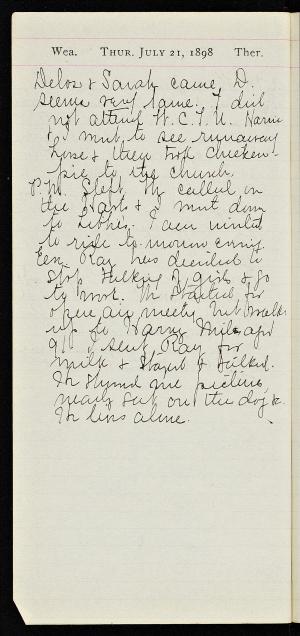 Wea. THUR. JULY 21, 1898 Ther.
Delos & Sarah came, D.
seems very lame. I did
not attend W. C. T. U. Harry
& I went to see runaway
horse & then took chicken
pie to the church.
P.M. Slept, We called on
the & I went down
to I am invited
to ride to-morrow evening
Eve. Ray has decided to
stop talking of girls & go
to work. We started for
open air meeting but walked
up to Harry
9 I sent Ray for
milk & stayed & talked.
He showed me pictures,
nearly sat on the dog &c.
He lives alone.